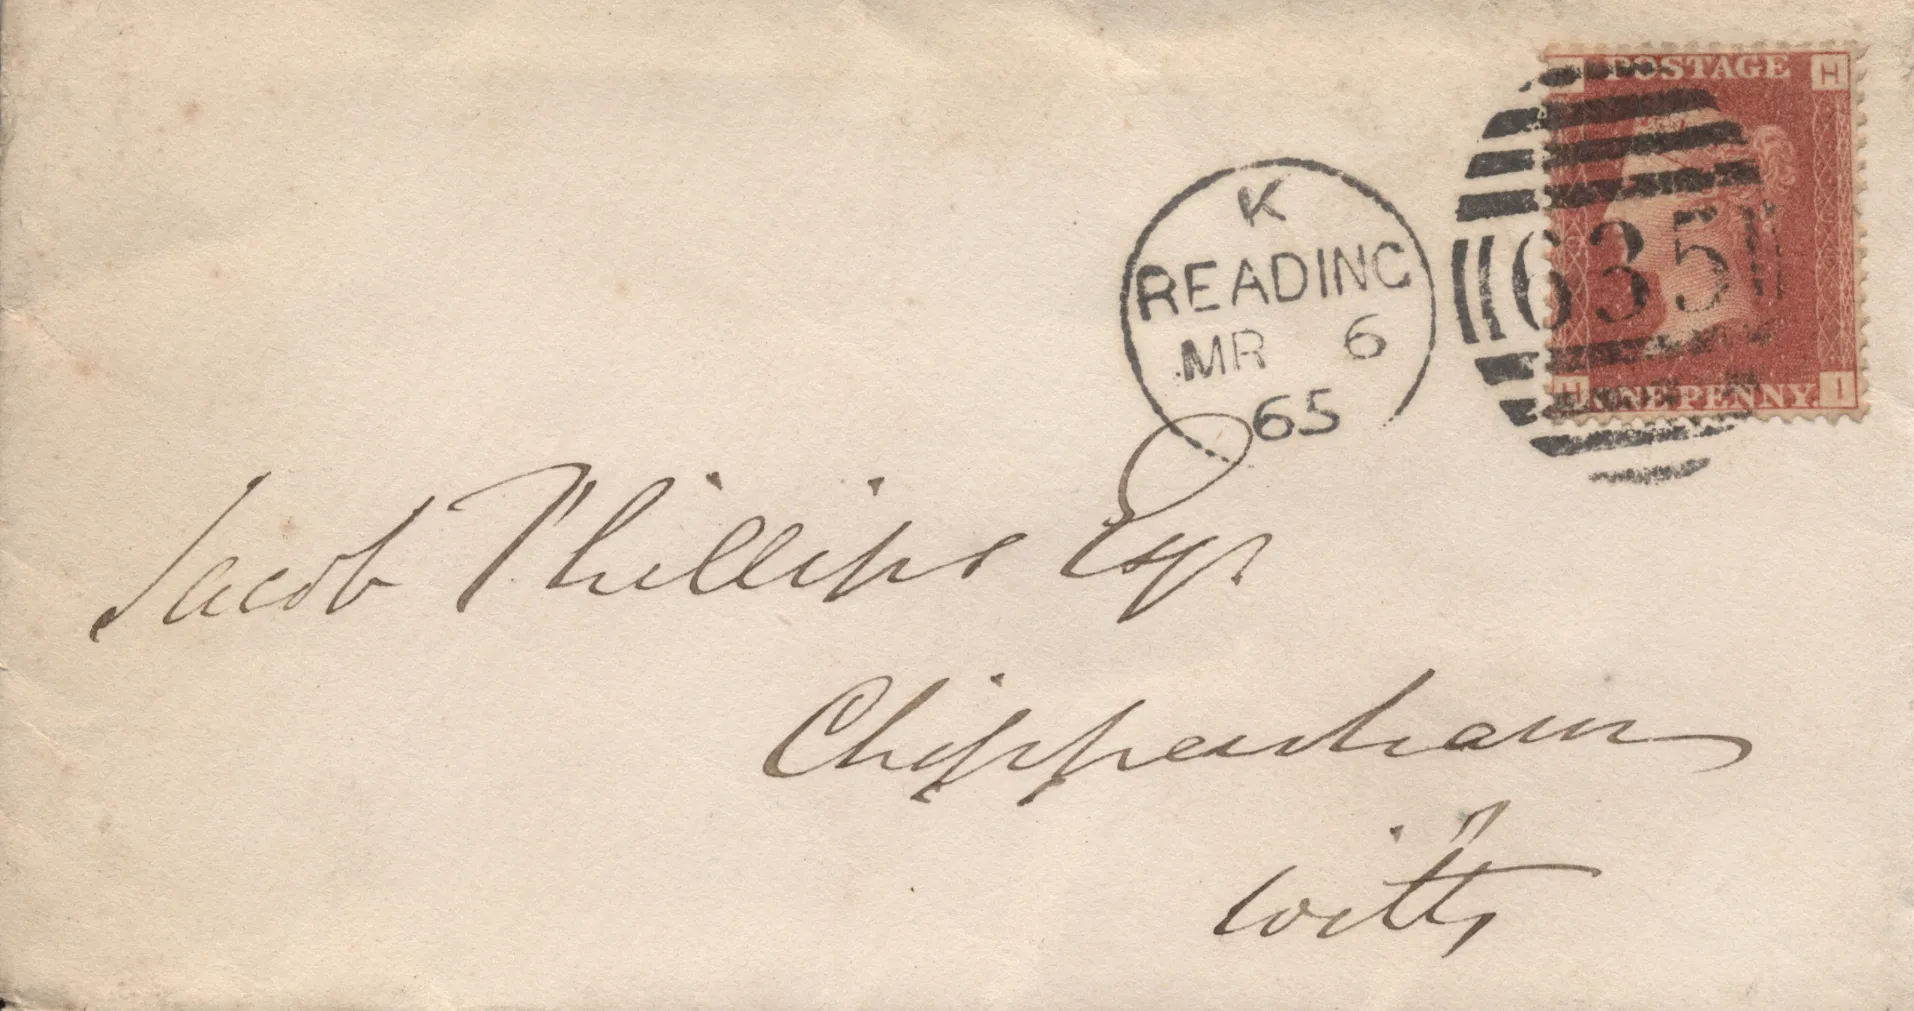 POSTAGE
H
K
READING
MR 6
65
635
H ONE PENNY. I
Jacob Phillips Esqr
Chippenham
Wilts